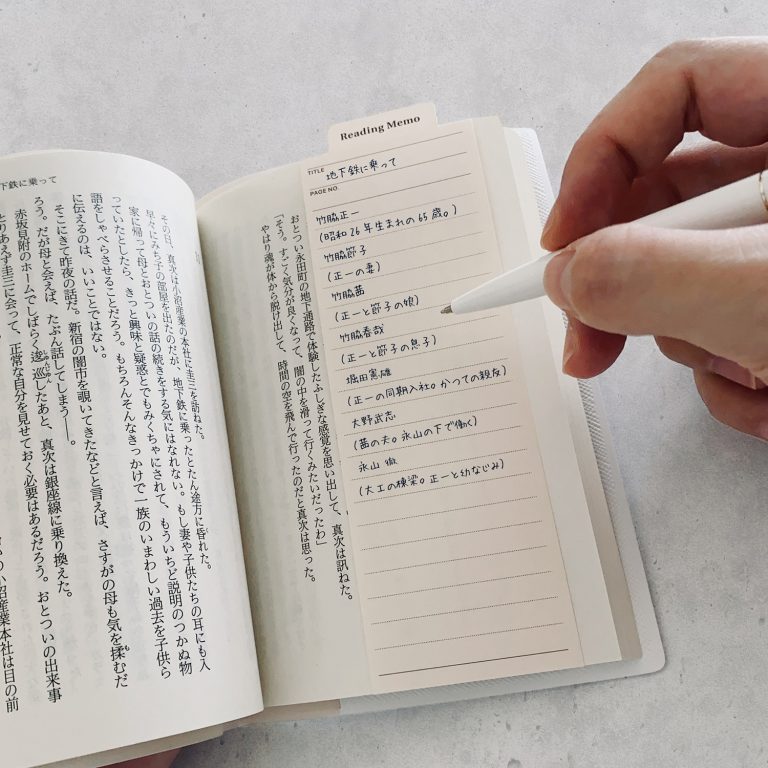 Reading Memo
TITLE 地下鉄に乗って
PAGE NO.
竹脇正一
(昭和26年生まれの65歳。)
竹脇節子
(正一の妻)
竹脇茜
(正一と節子の娘)
竹脇春哉
(正一と節子の息子)
堀田憲雄
(正一の同期入社。かつての親友)
大野武志
(茜の夫。永山の下で働く)
永山 徹
(大工の棟梁。正一と幼なじみ)
おとつい永田町の地下通路で体験したふしぎな感覚を思い出して、真次は訊ねた。
「そう。すごく気分が良くなって、闇の中を滑って行くみたいだったわ」
やはり魂が体から脱け出して、時間の空を飛んで行ったのだと真次は思った。
下鉄に乗って
その日、真次は小沼産業の本社に圭三を訪ねた。
みち子の部屋を出たのだが、地下鉄に乗ったとたん途方に昏れた。
家に帰って母とおとついの話の続きをする気にはなれない。もし妻や子供たちの耳にも入
っていたとしたら、きっと興味と疑惑とでもみくちゃにされて、もういちど説明のつかぬ物
語をしゃべらせることだろう。もちろんそんなきっかけで一族のいまわしい過去を子供ら
に伝えるのは、いいことではない。
そこにきて昨夜の話だ。新宿の闇市を覗いてきたなどと言えば、さすがの母も気を揉むだ
ろう。だが母と会えば、たぶん話してしまう――。
赤坂見附のホームでしばらく逡巡したあと、真次は銀座線に乗り換えた。
とりあえず圭三に会って、正常な自分を見せておく必要はあるだろう。おとついの出来事
小沼産業本社は目の前